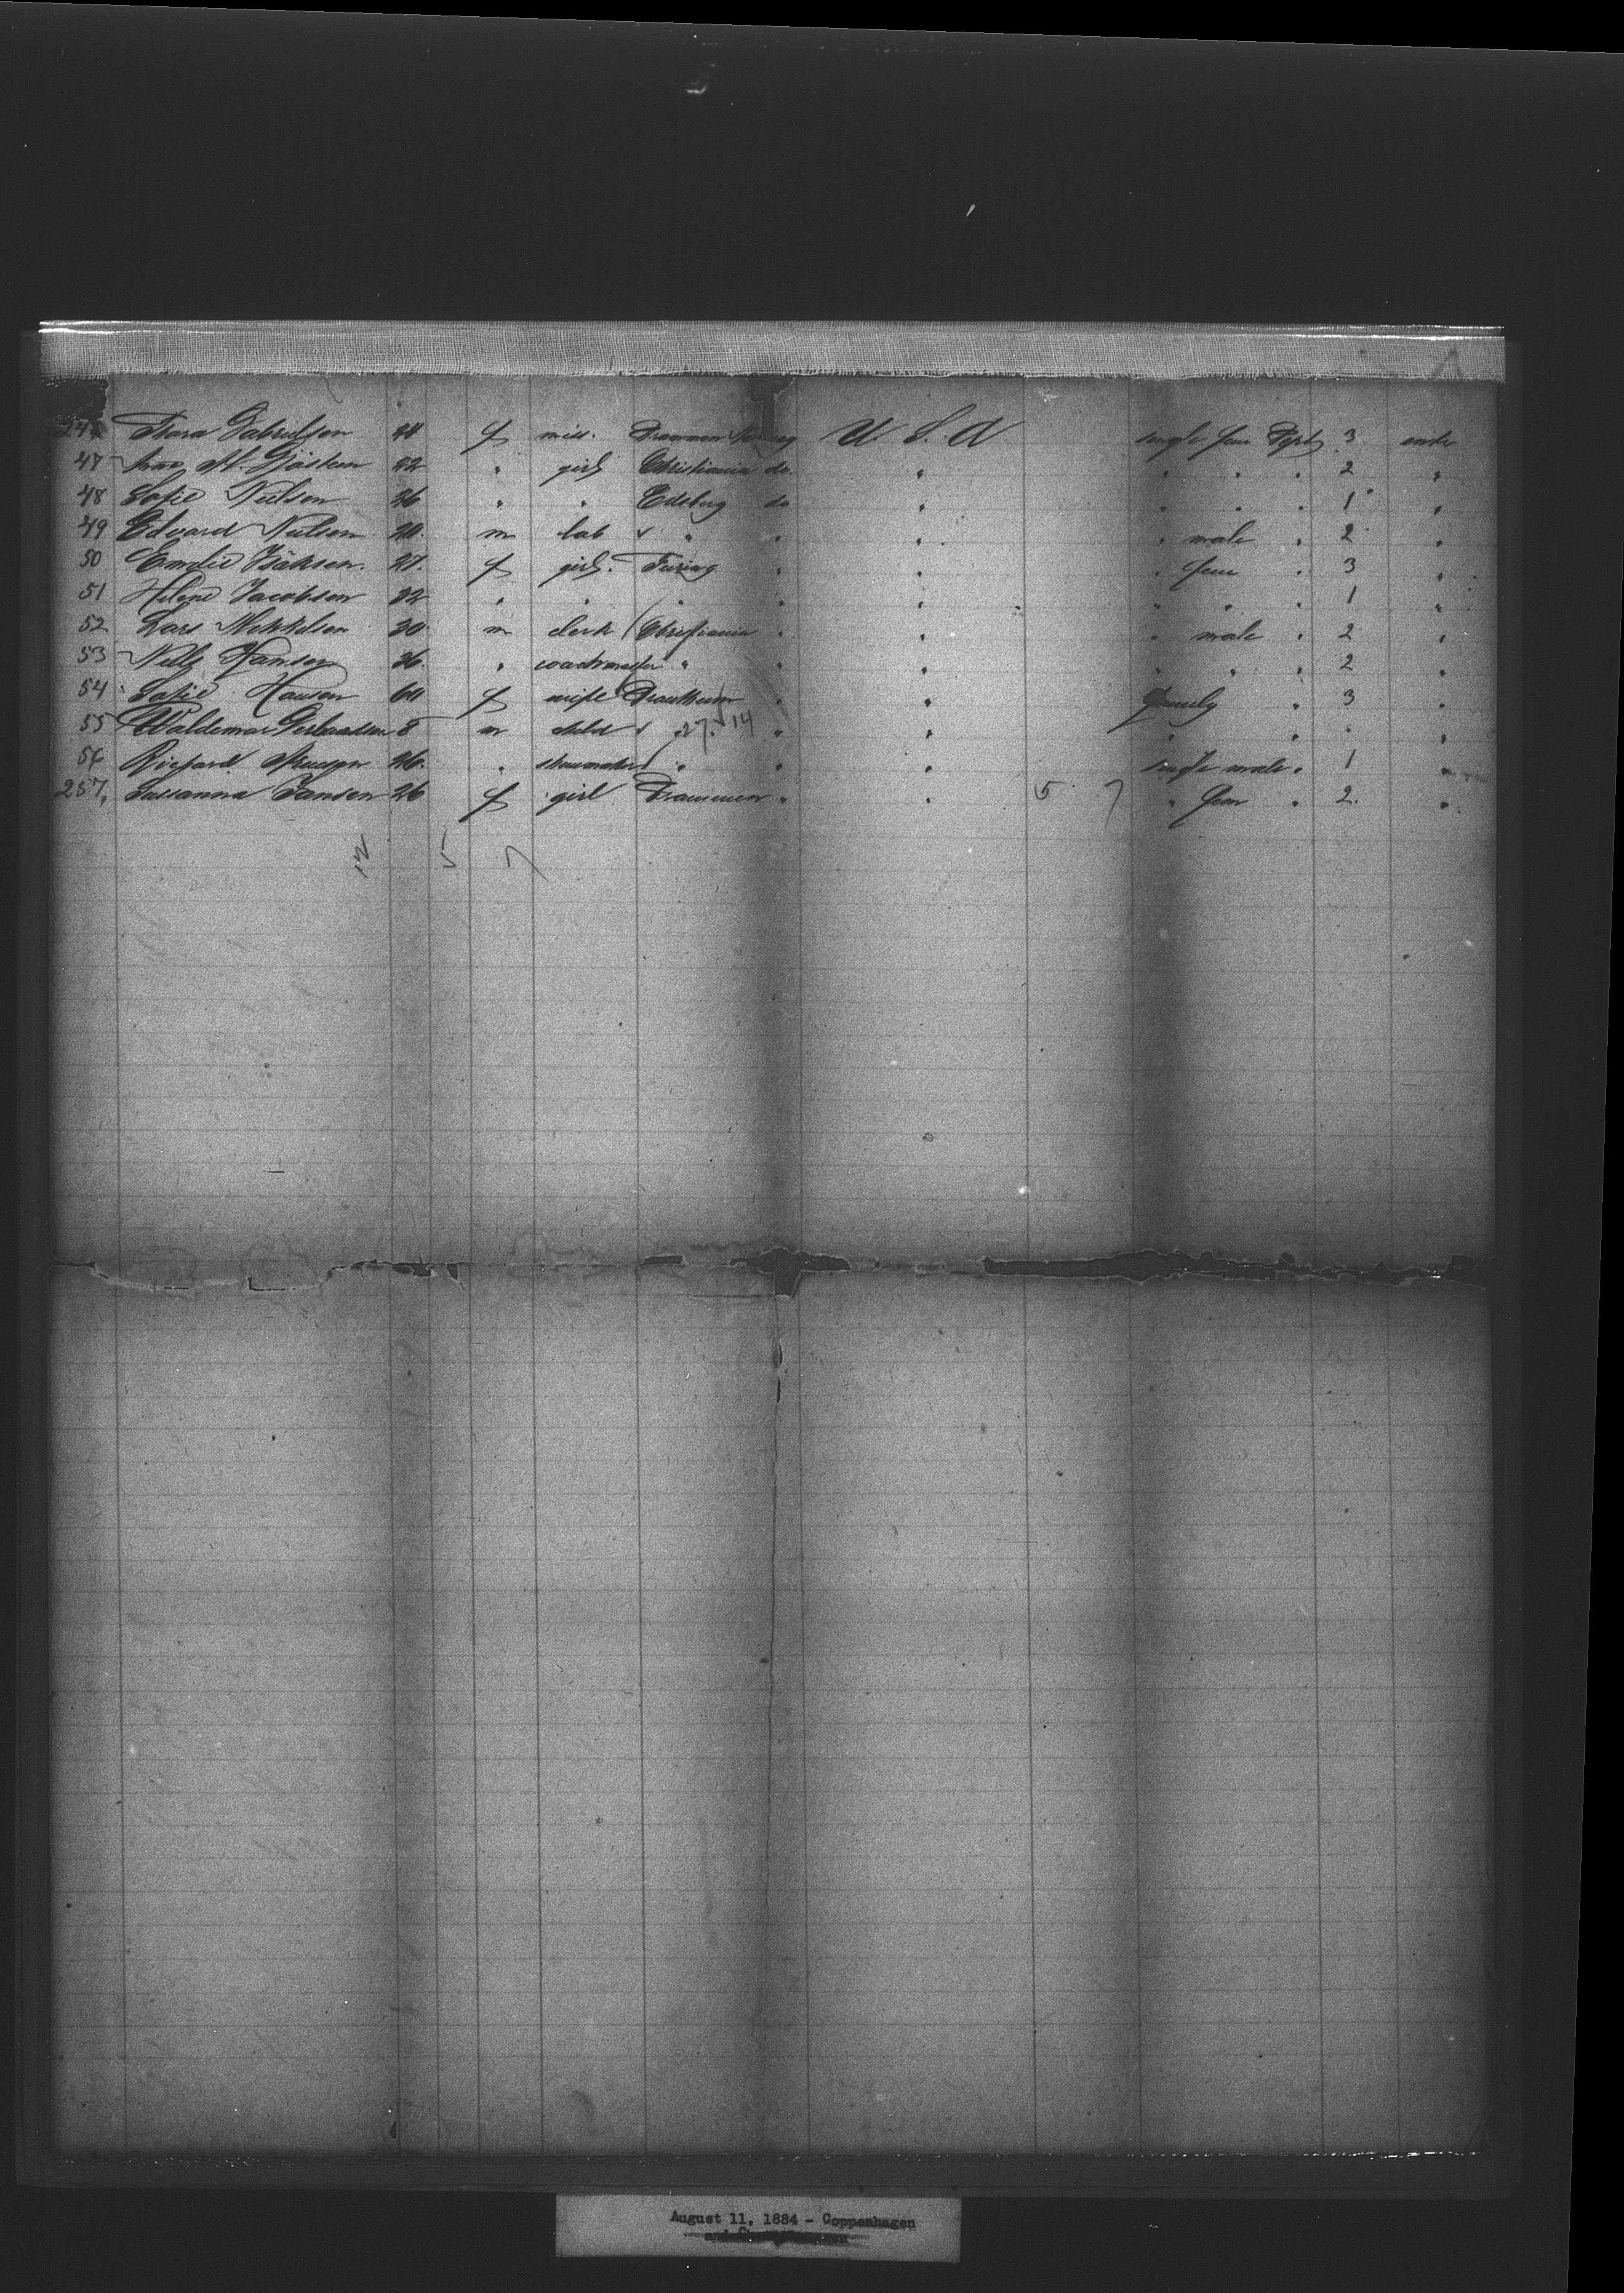 24 Thora Gabrielsen 24 f miss. Drammen Norway U. S. A single fem Dept 3 under
47 M. 22 " girl Christiania do. " " " " 2 "
48 Sofie Nielsen 26 " " Edsberg do " " " " 1 "
49 Edvard Nielsen 20. m lab " " " " male " 2 "
50 Emilie Isaksen. 27. f girl. " " " fem " 3 "
51 Helene Jacobsen 22 " " " " " " " " 1 "
52 Lars Mikkelsen 30 m clerk Christiania " " " male " 2 "
53 Hansen 26. " " " " " " " 2 "
54 Sofie Hansen 60 f wife " " Family " 3 "
55 Waldemar 8 m child " 27. 14 " " " " " "
56 Richard 26. " shoemaker " " " single male " 1 "
257, Sussanna Jansen 26 f girl Drammen " " 5 7 " fem " 2. "
12 5 7
August 11, 1884 - Coppenhagen